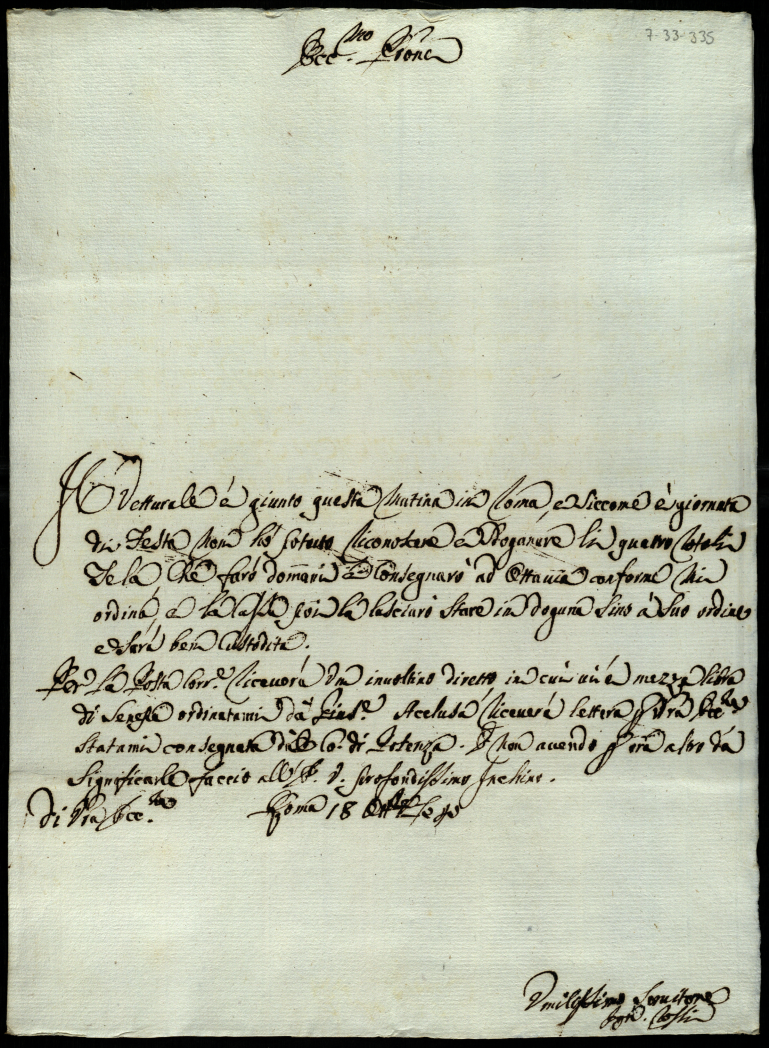 7-33-335
Ecc.mo Prone
Il Vetturale è giunto questa Mutina in Roma, e siccome è giornata
di Festa Non hò potuto riconoscere e sdoganare li quattro
Tela Che farò domani e Consegnarò ad Ottavia conforme Mi
ordina, e la lasciarò stare in dogana sino à suo ordine
e sarà ben Custodita.
Per la Posta Corr.e riceverà Un involtino diretto in cui vi è mezza libra
di ordinatami dà Acclusa riceverà lettera Vra Ecc.za
statami consegnata dal Co. di Potenza. E Non avendo p ora altro dà
Significarle faccio all' E. V. profondissimo Inchino.
Di Vra Ecc.za Roma 18
Umilissimo Servitore